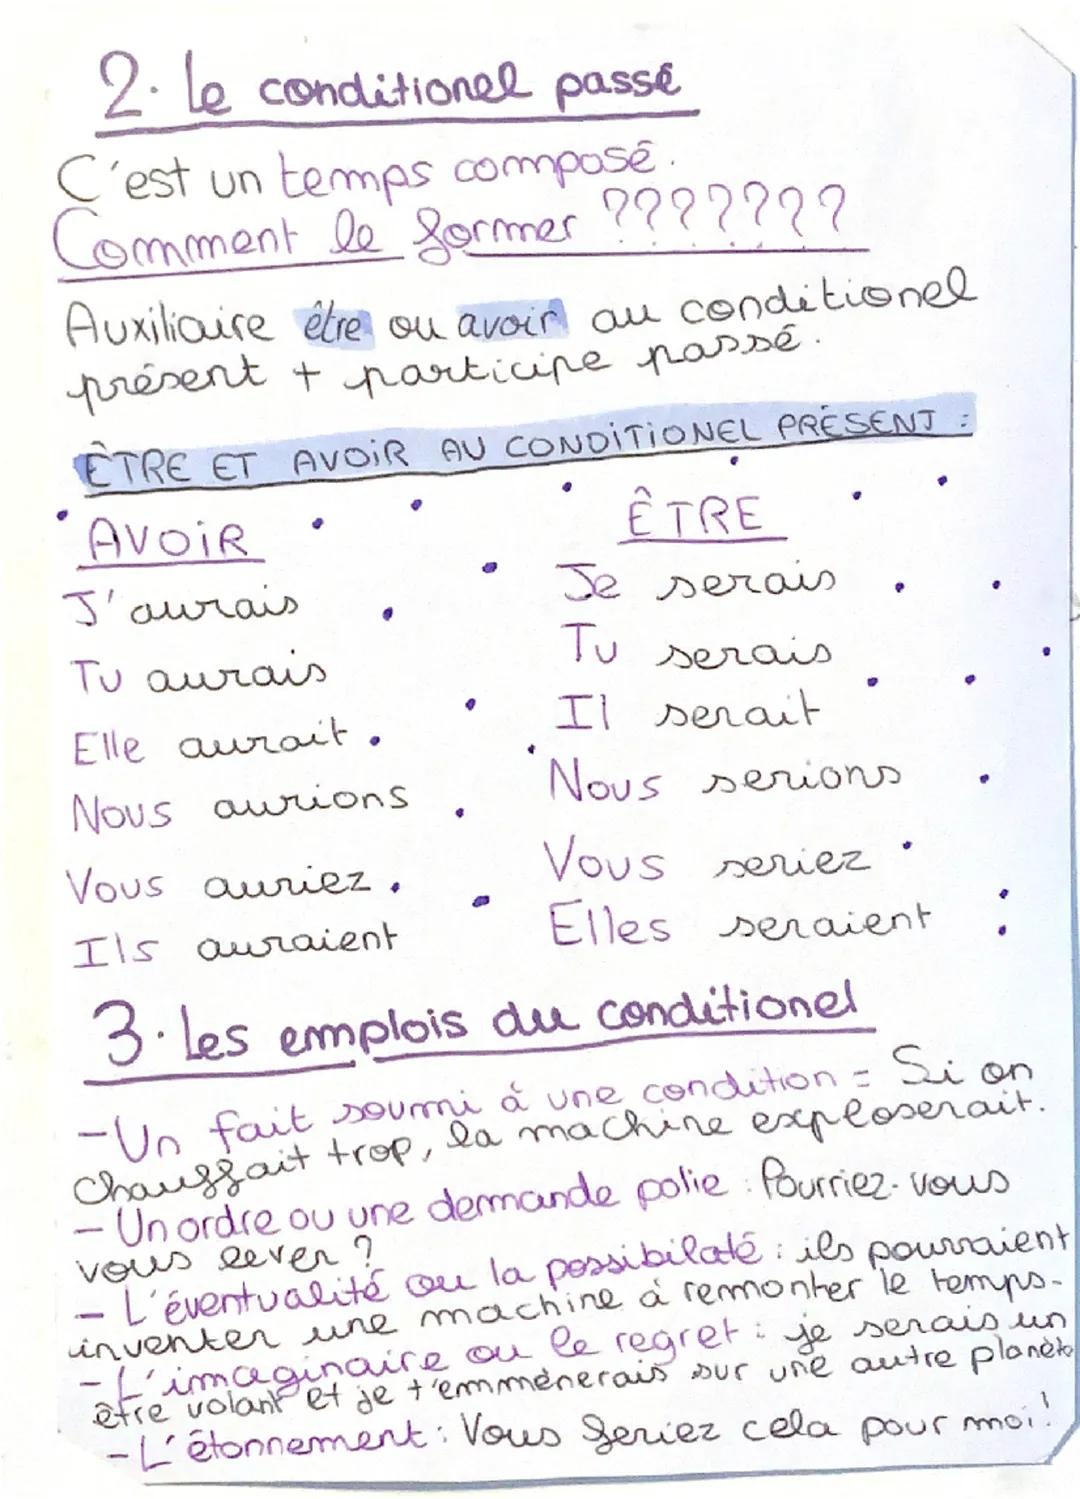 2. Le conditionel passé
C'est un temps composé.
Comment le former ???????
Auxiliaire être ou avoir au conditionel
présent + participe passé.
ÊTRE ET AVOIR AU CONDITIONEL PRÉSENT :
AVOIR
J'aurais
Tu aurais
Elle aurait.
Nous aurions
Vous auriez.
Ils auraient
ÊTRE
Je serais
Tu serais
Il serait
Nous serions
Vous seriez
Elles seraient
3. Les emplois du conditionel
- Un fait soumi à une condition = Si on
chauffait trop, la machine exploserait.
- Un ordre ou une demande polie : Pourriez-vous
vous lever ?
- L'éventualité ou la possibilaté : ils pourraient
inventer une machine à remonter le temps.
- L'imaginaire ou le regret : je serais un
être volant et je t'emmènerais sur une autre planète
- L'étonnement : Vous feriez cela pour moi !